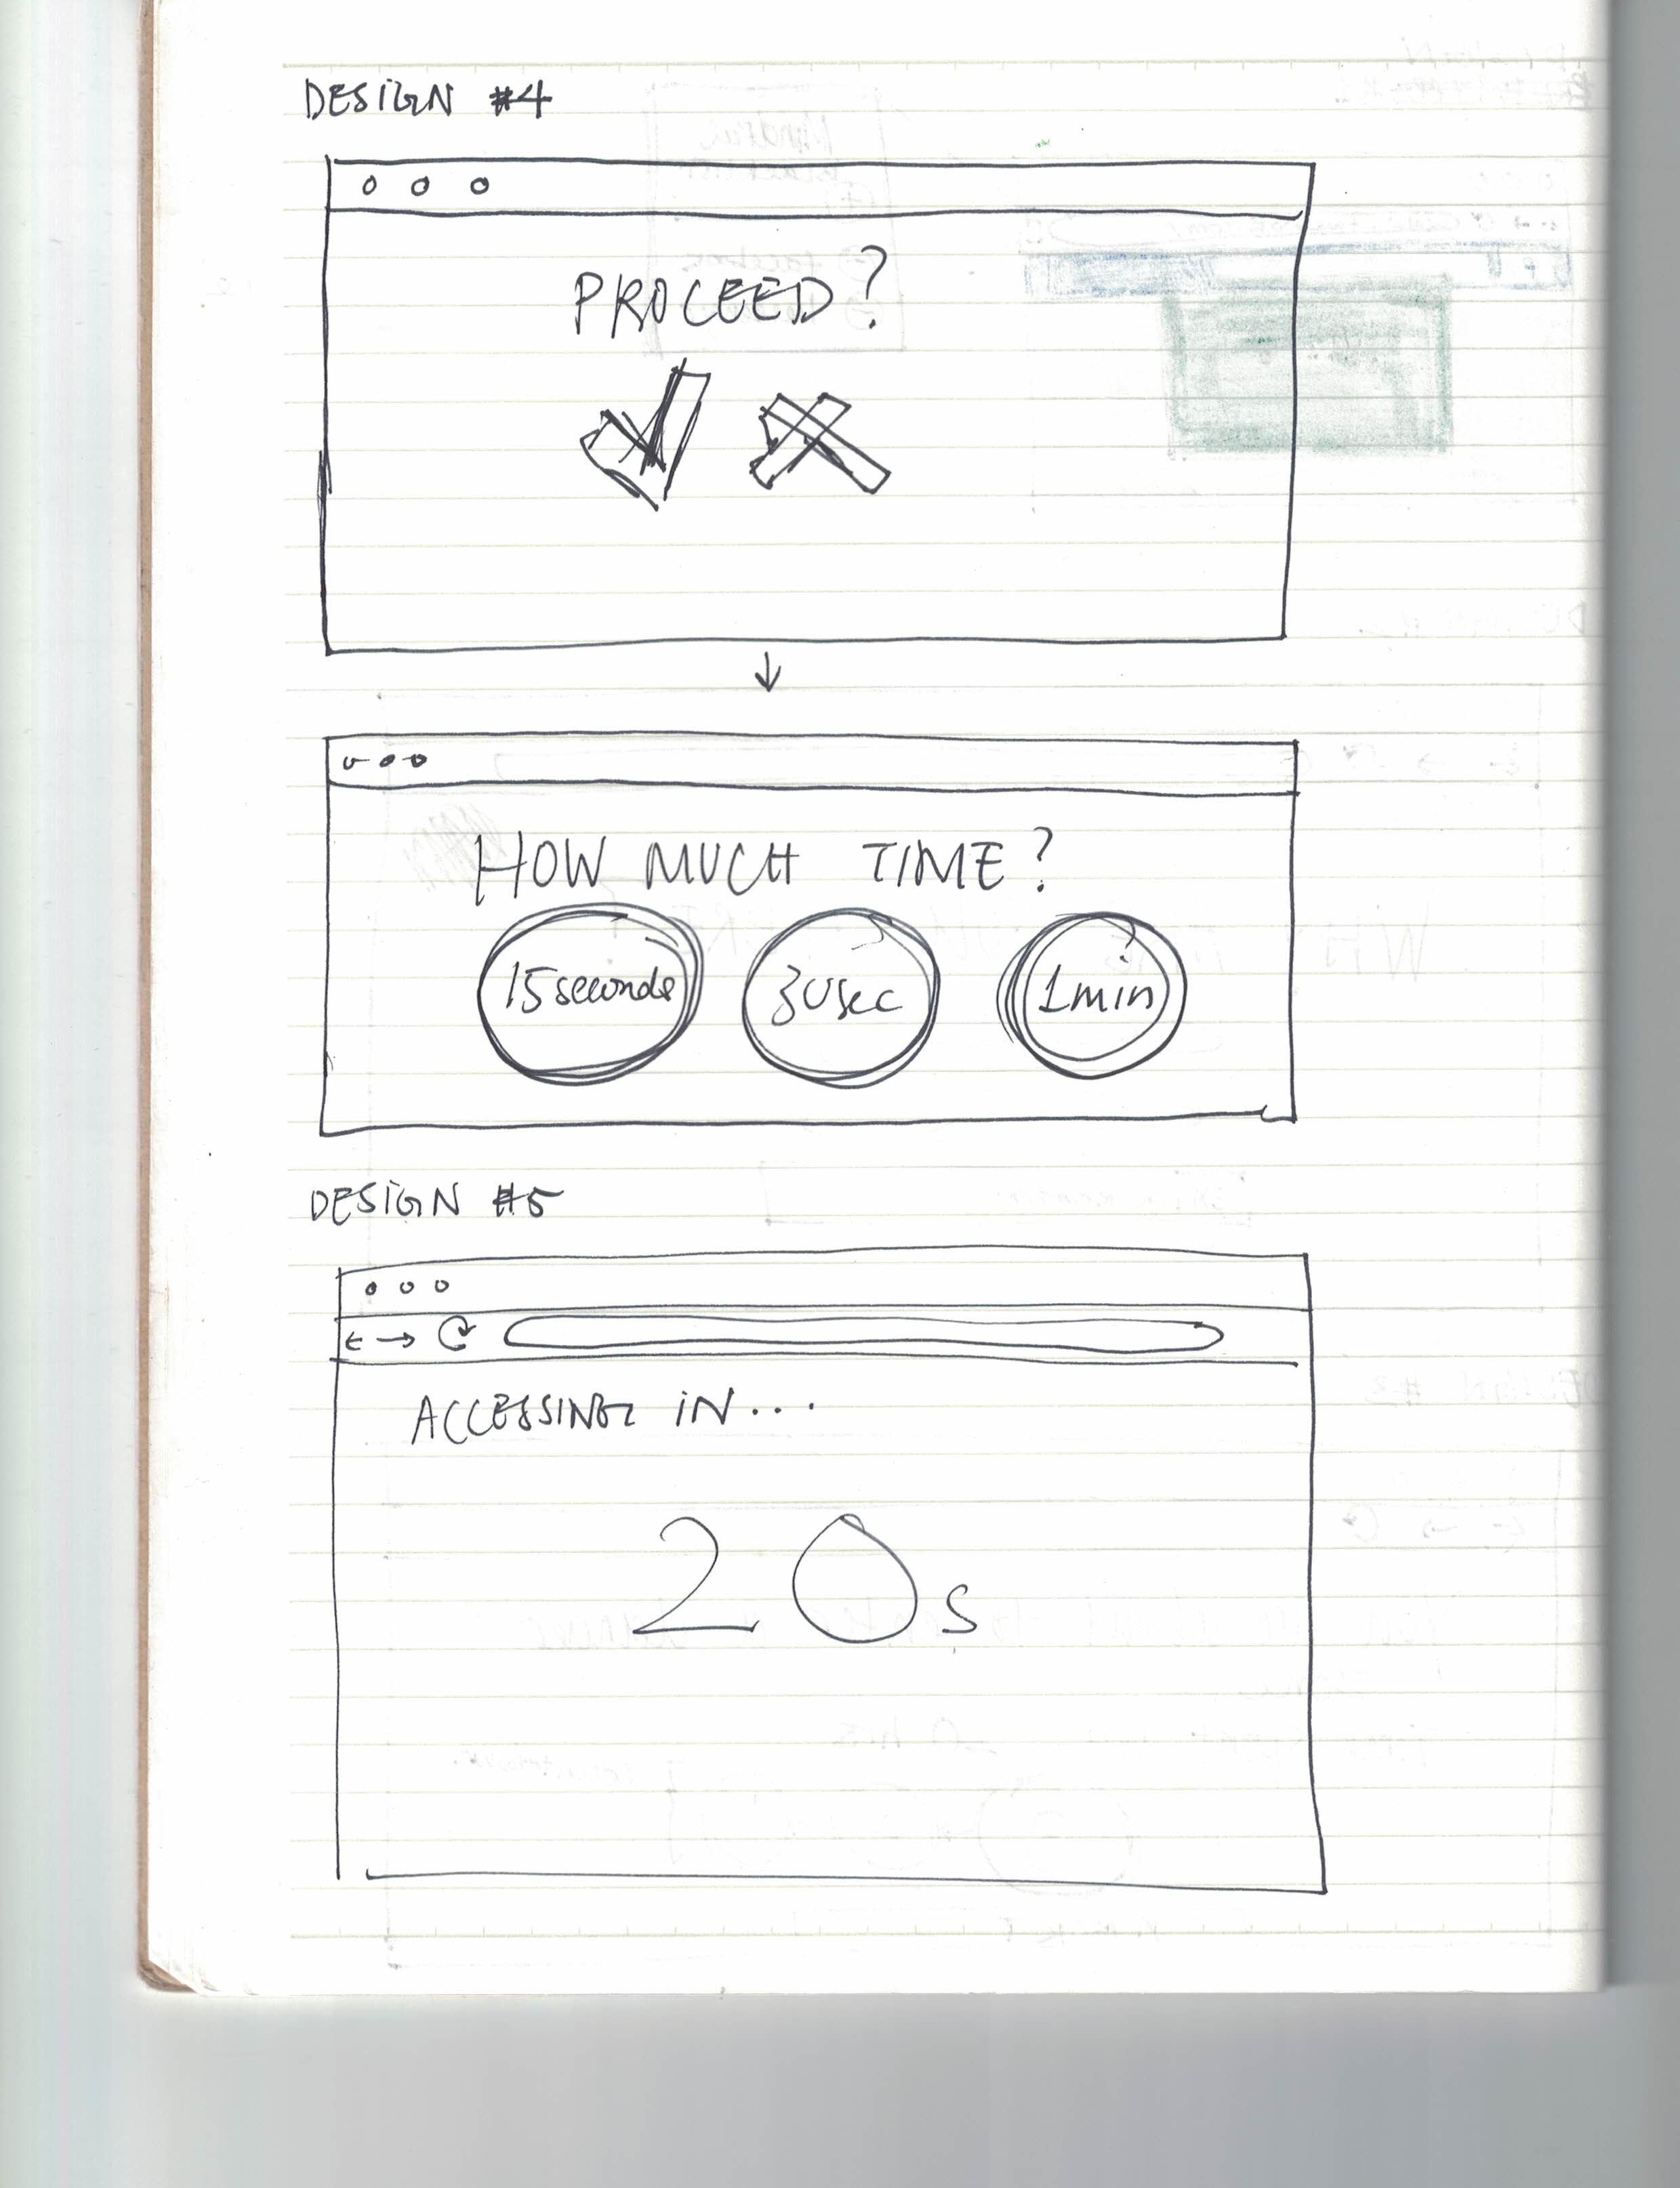 DESIGN #4
PROCEED?
HOW MUCH TIME?
15 seconds 30sec 1min
DESIGN #5
ACCESSING IN...
20s